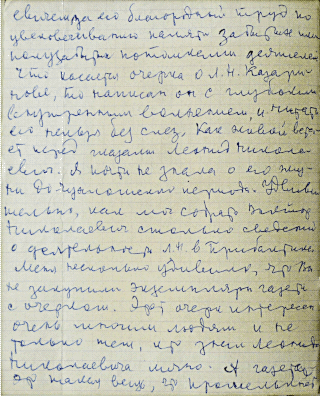 его благородный труд по
увековечиванию памяти забытых или
полузабытых потомками деятелей.
Что касается очерка о Л.Н. Назарь
нове, то написан он с глубоким
внутренним волнением, и читать
его нельзя без слез. Как живой вста
ет перед глазами Леонид Никола
евич. Я почти не знала о его жиз
ни до периода. Удиви
тельно, как мог собрать
Николаевич столько сведений
о деятельности Л.Н. в Прибалтике.
Меня несколько удивило, что Вы
не закупили экземпляры газеты
с очерком. Этот очерк интересен
очень многим людям и не
только тем, кто знал Леонида
Николаевича лично. А газета
это такая вещь, что